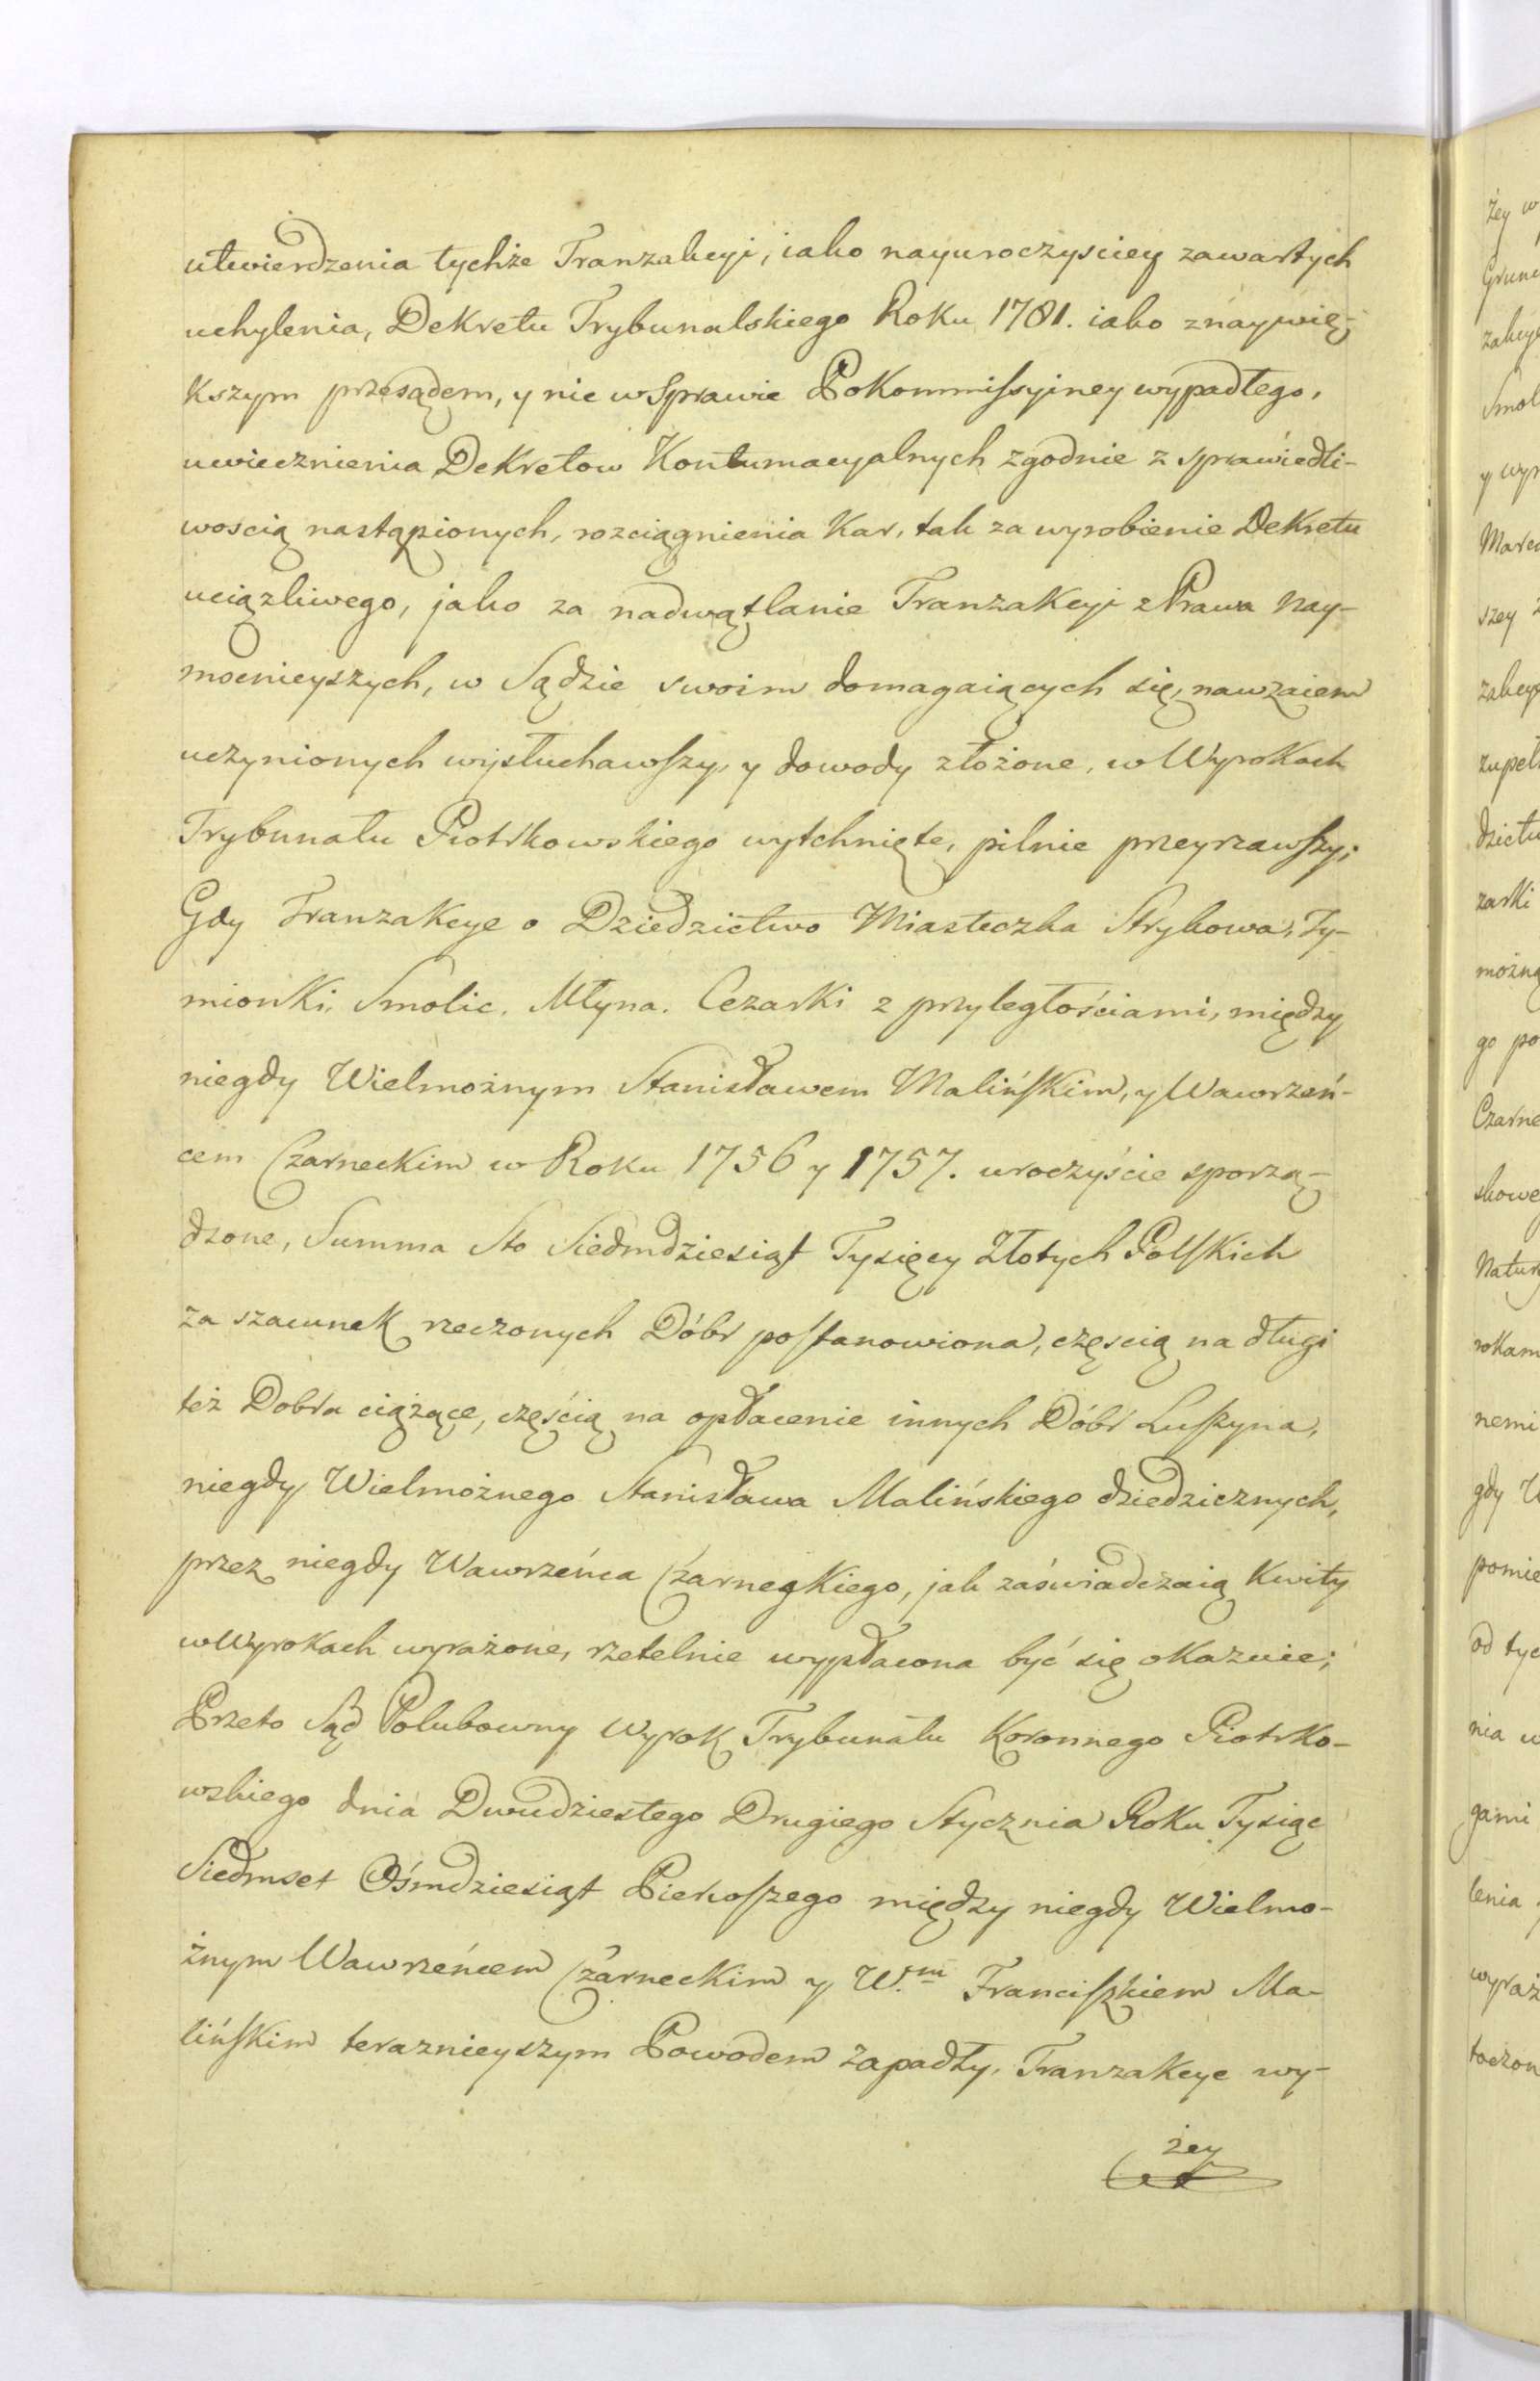 utwierdzenia tychże Tranzakcyi, iako nayuroczyściey zawartych
uchylenia, Dekretu Trybunalskiego Roku 1781. iako z naywię-
kszym przesądem, y nie w Sprawie Pokommissyiney wypadłego,
uwiecznienia Dekretow Kontumacyalnych zgodnie z sprawiedli-
wością nastąpionych, rozciągnienia Kar, tak za wyrobienie Dekretu
uciązliwego, jako za nadwątlanie Tranzakcyi z Prawa nay-
mocnieyszych, w Sądzie swoim domagaiących się, nawzaiem
uczynionych wysłuchawszy, y dowody złożone, w Wyrokach
Trybunału Piotrkowskiego wytchnięte, pilnie przeyrzawszy;
Gdy Tranzakcye o Dziedzictwo Miasteczka Strykowa, Ty-
mionki, Smolic, Młyna. Cezarki z przyległościami, między
niegdy Wielmożnym Stanisławem Malińskim, y Wawrzeń-
cem Czarneckim w Roku 1756 y 1757. uroczyście sporzą-
dzone, Summa Sto Siedmdziesiąt Tysięcy Złotych Polskich
za szacunek rzeczonych Dóbr postanowiona, częścią na długi
też Dobra ciążące, częścią na opłacenie innych Dóbr Luszyna,
niegdy Wielmożnego Stanisława Malińskiego dziedzicznych,
przez niegdy Wawrzeńca Czarneckiego, jak zaświadczaią Kwity
w Wyrokach wyrażone, rzetelnie wypłacona być się okazuie;
Przeto Sąd Polubowny Wyrok Trybunału Koronnego Piotrko-
wskiego dnia Dwudziestego Drugiego Stycznia Roku Tysiąc
Siedmset Ośmdziesiąt Pierwszego między niegdy Wielmo-
żnym Wawrzeńcem Czarneckim y W.m Franciszkiem Ma-
lińskim teraznieyszym Powodem zapadły, Tranzakcye wy-
żey
żey w
Grun
zakcy
Smol
y wyr
szey
zakcy
zupeł
zarki
możną
go po
Czarne
skowe
rokam
nemi
gdy W
pomie
od tyc
nia w
gami
lenia
wyraż
toczon